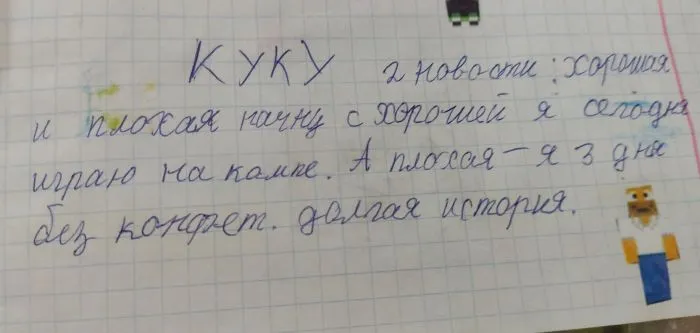 КУКУ 2 новости: хорошая
и плохая начну с хорошей я сегодня
играю на компе. А плохая – я 3 дня
без конфет. долгая история.